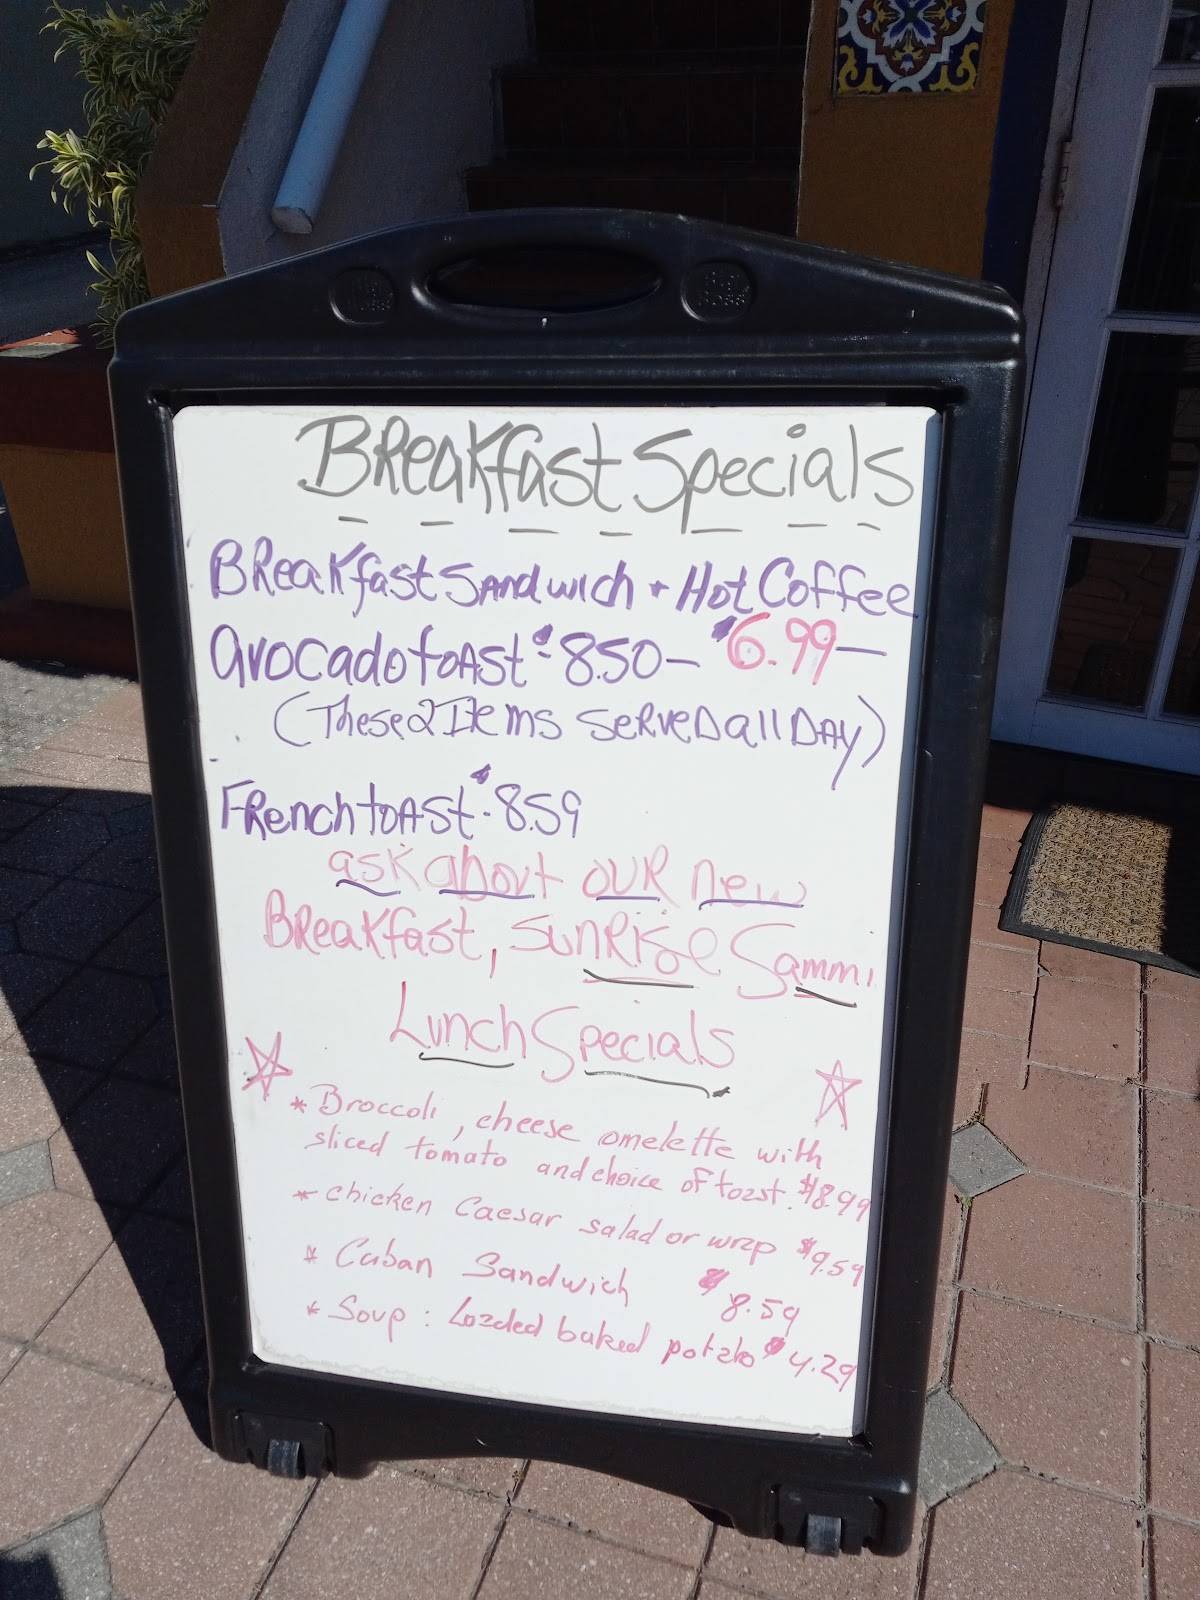 Breakfast Specials
Breakfast Sandwich + Hot Coffee
avocado toast $8.50 — $6.99 —
(These 2 Items Served all Day)
French toast $8.59
ask about our new
Breakfast, Sunrise Sammi
Lunch Specials
* Broccoli, cheese omelette with
sliced tomato and choice of toast. $8.99
* chicken Caesar salad or wrap $9.59
* Cuban Sandwich $8.59
* Soup: Loaded baked potato $4.29